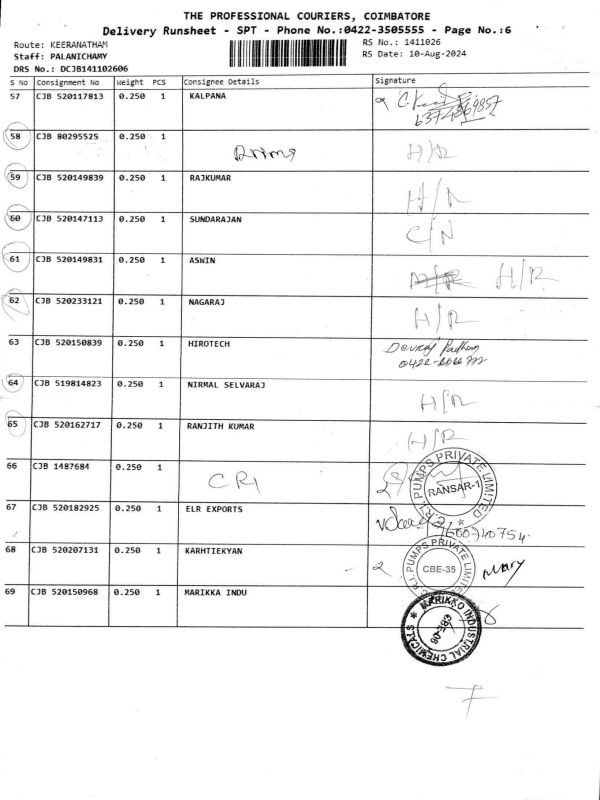 THE PROFESSIONAL COURIERS, COIMBATORE
Delivery Runsheet - SPT - Phone No.:0422-3505555 - Page No.:6
Route: KEERANATHAM
RS No.: 1411026
Staff: PALANICHAMY
RS Date: 10-Aug-2024
DRS No.: DCJB141102606
S No Consignment No Weight PCS Consignee Details Signature
57 CJB 520117813 0.250 1 KALPANA
58 CJB 80295525 0.250 1 H/R
59 CJB 520149839 0.250 1 RAJKUMAR H/R
60 CJB 520147113 0.250 1 SUNDARAJAN C/N
61 CJB 520149831 0.250 1 ASWIN H/R
62 CJB 520233121 0.250 1 NAGARAJ H/R
63 CJB 520150839 0.250 1 HIROTECH
64 CJB 519814823 0.250 1 NIRMAL SELVARAJ H/R
65 CJB 520162717 0.250 1 RANJITH KUMAR H/R
66 CJB 1487684 0.250 1 CRI 2
R.I. PUMPS PRIVATE LIMITED
RANSAR-1
67 CJB 520182925 0.250 1 ELR EXPORTS
68 CJB 520207131 0.250 1 KARHTIEKYAN 2
C.R.I. PUMPS PRIVATE LIMITED
CBE-35
Mary
69 CJB 520150968 0.250 1 MARIKKA INDU
MARIKKO INDUSTRIAL CHEMICALS
CBE-06
7